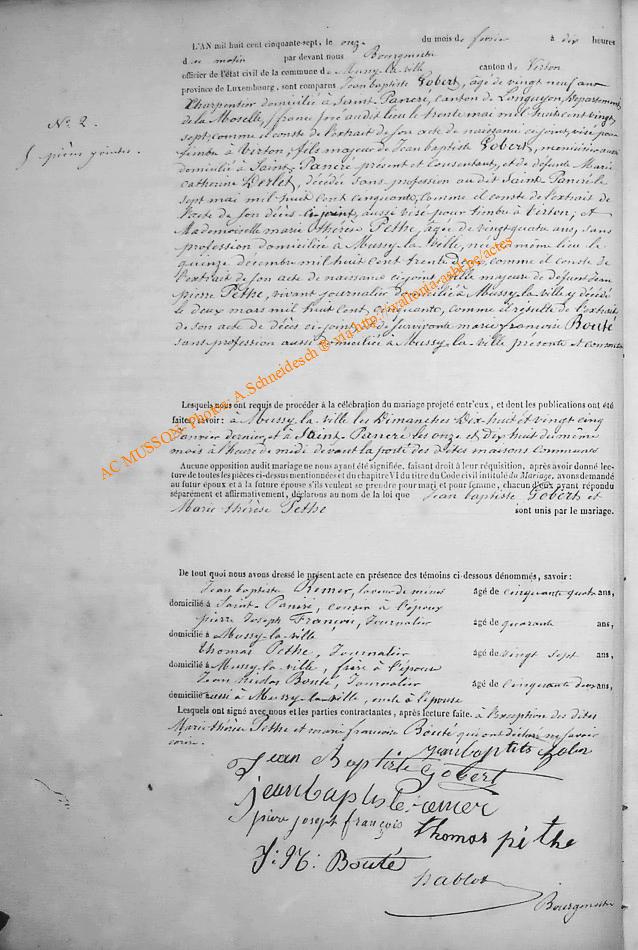 L'AN mil huit cent cinquante-sept, le onze du mois de février à dix heures
du matin par devant nous Bourgmestre
officier de l'état civil de la commune de Mussy-la-ville canton de Virton
province de Luxembourg, sont comparus Jean baptiste Gobert, âgé de vingt neuf ans
Charpentier domicilié à Saint-Pancré, canton de Longuyon, Département
de la Moselle, france, né audit lieu le trente mai mil huit cent vingt
N° 2.
sept, comme il conste de l'extrait de son acte de naissance ci joint, visé pour
5 pièces jointes.
timbre à Virton; fils majeur de Jean baptiste Gobert,
domicilié à Saint-Pancré présent et consentant, et de défunte Marie
catherine Derlet, décédée sans profession audit Saint Pancré le
sept mai mil huit cent cinquante, comme il conste de l'extrait de
l'acte de son décès ci-joint, aussi visé pour timbre à Virton; et
Mademoiselle marie thérèse Pethe, âgée de vingt quatre ans, sans
profession domiciliée à Mussy-la-Ville, née au même lieu le
quinze décembre mil huit cent trente deux, comme il conste de
l'extrait de son acte de naissance ci joint, fille majeure de défunt Jean
pierre Pethe, vivant journalier domicilié à Mussy-la-ville y décédé
le deux mars mil huit cent cinquante, comme il résulte de l'extrait
de son acte de décès ci-joint, et de survivante marie françoise Bouté
sans profession aussi domiciliée à Mussy-la-ville présente et consente
Lesquels nous ont requis de procéder à la célébration du mariage projeté entr'eux, et dont les publications ont été
faites, savoir: à Mussy-la-ville les Dimanches Dix-huit et vingt cinq
Janvier dernier et à Saint-Pancré les onze et dix huit du même
mois à l'heure de midi devant la porte des dites maisons communes
Aucune opposition audit mariage ne nous ayant été signifiée, faisant droit à leur réquisition, après avoir donné lec-
ture de toutes les pièces ci-dessus mentionnées et du chapitre VI du titre du Code civil intitulé du Mariage, avons demandé
au futur époux et à la future épouse s'ils veulent se prendre pour mari et pour femme, chacun d'eux ayant répondu
séparément et affirmativement, déclarons au nom de la loi que Jean baptiste Gobert et
Marie thérèse Pethe sont unis par le mariage.
De tout quoi nous avons dressé le présent acte en présence des témoins ci-dessous dénommés, savoir:
Jean baptiste laveur de mines âgé de cinquante quatre ans,
domicilié à Saint-Pancré, cousin à l'époux
pierre Joseph François, Journalier âgé de quarante ans,
domicilié à Mussy-la-ville
thomas Pethe, Journalier âgé de vingt sept ans,
domicilié à Mussy-la-ville, frère à l'épouse
Jean Nicolas Bouté, Journalier âgé de cinquante deux ans,
domicilié aussi à Mussy-la-ville, oncle à l'épouse
Lesquels ont signé avec nous et les parties contractantes, après lecture faite. à l'exception des dites
Marie thérèse Pethe et marie françoise Bouté qui ont déclaré ne savoir
écrire.
jean baptiste gober
Jean Baptiste Gobert
jean baptiste
pierre joseph françois thomas pèthe
J: N: Bouté
Bourgmestre
AC MUSSON. Photos: A. Schneidesch ® via http://wallonia-asbl.be/actes